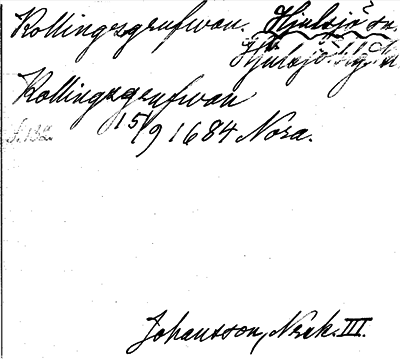 Kollingsgrufwan. Hjulsjö sn.
Hjulsjö
Kollingsgrufwan
s. 132. 15/9 1684 Nora.
Johansson, Norak. III.